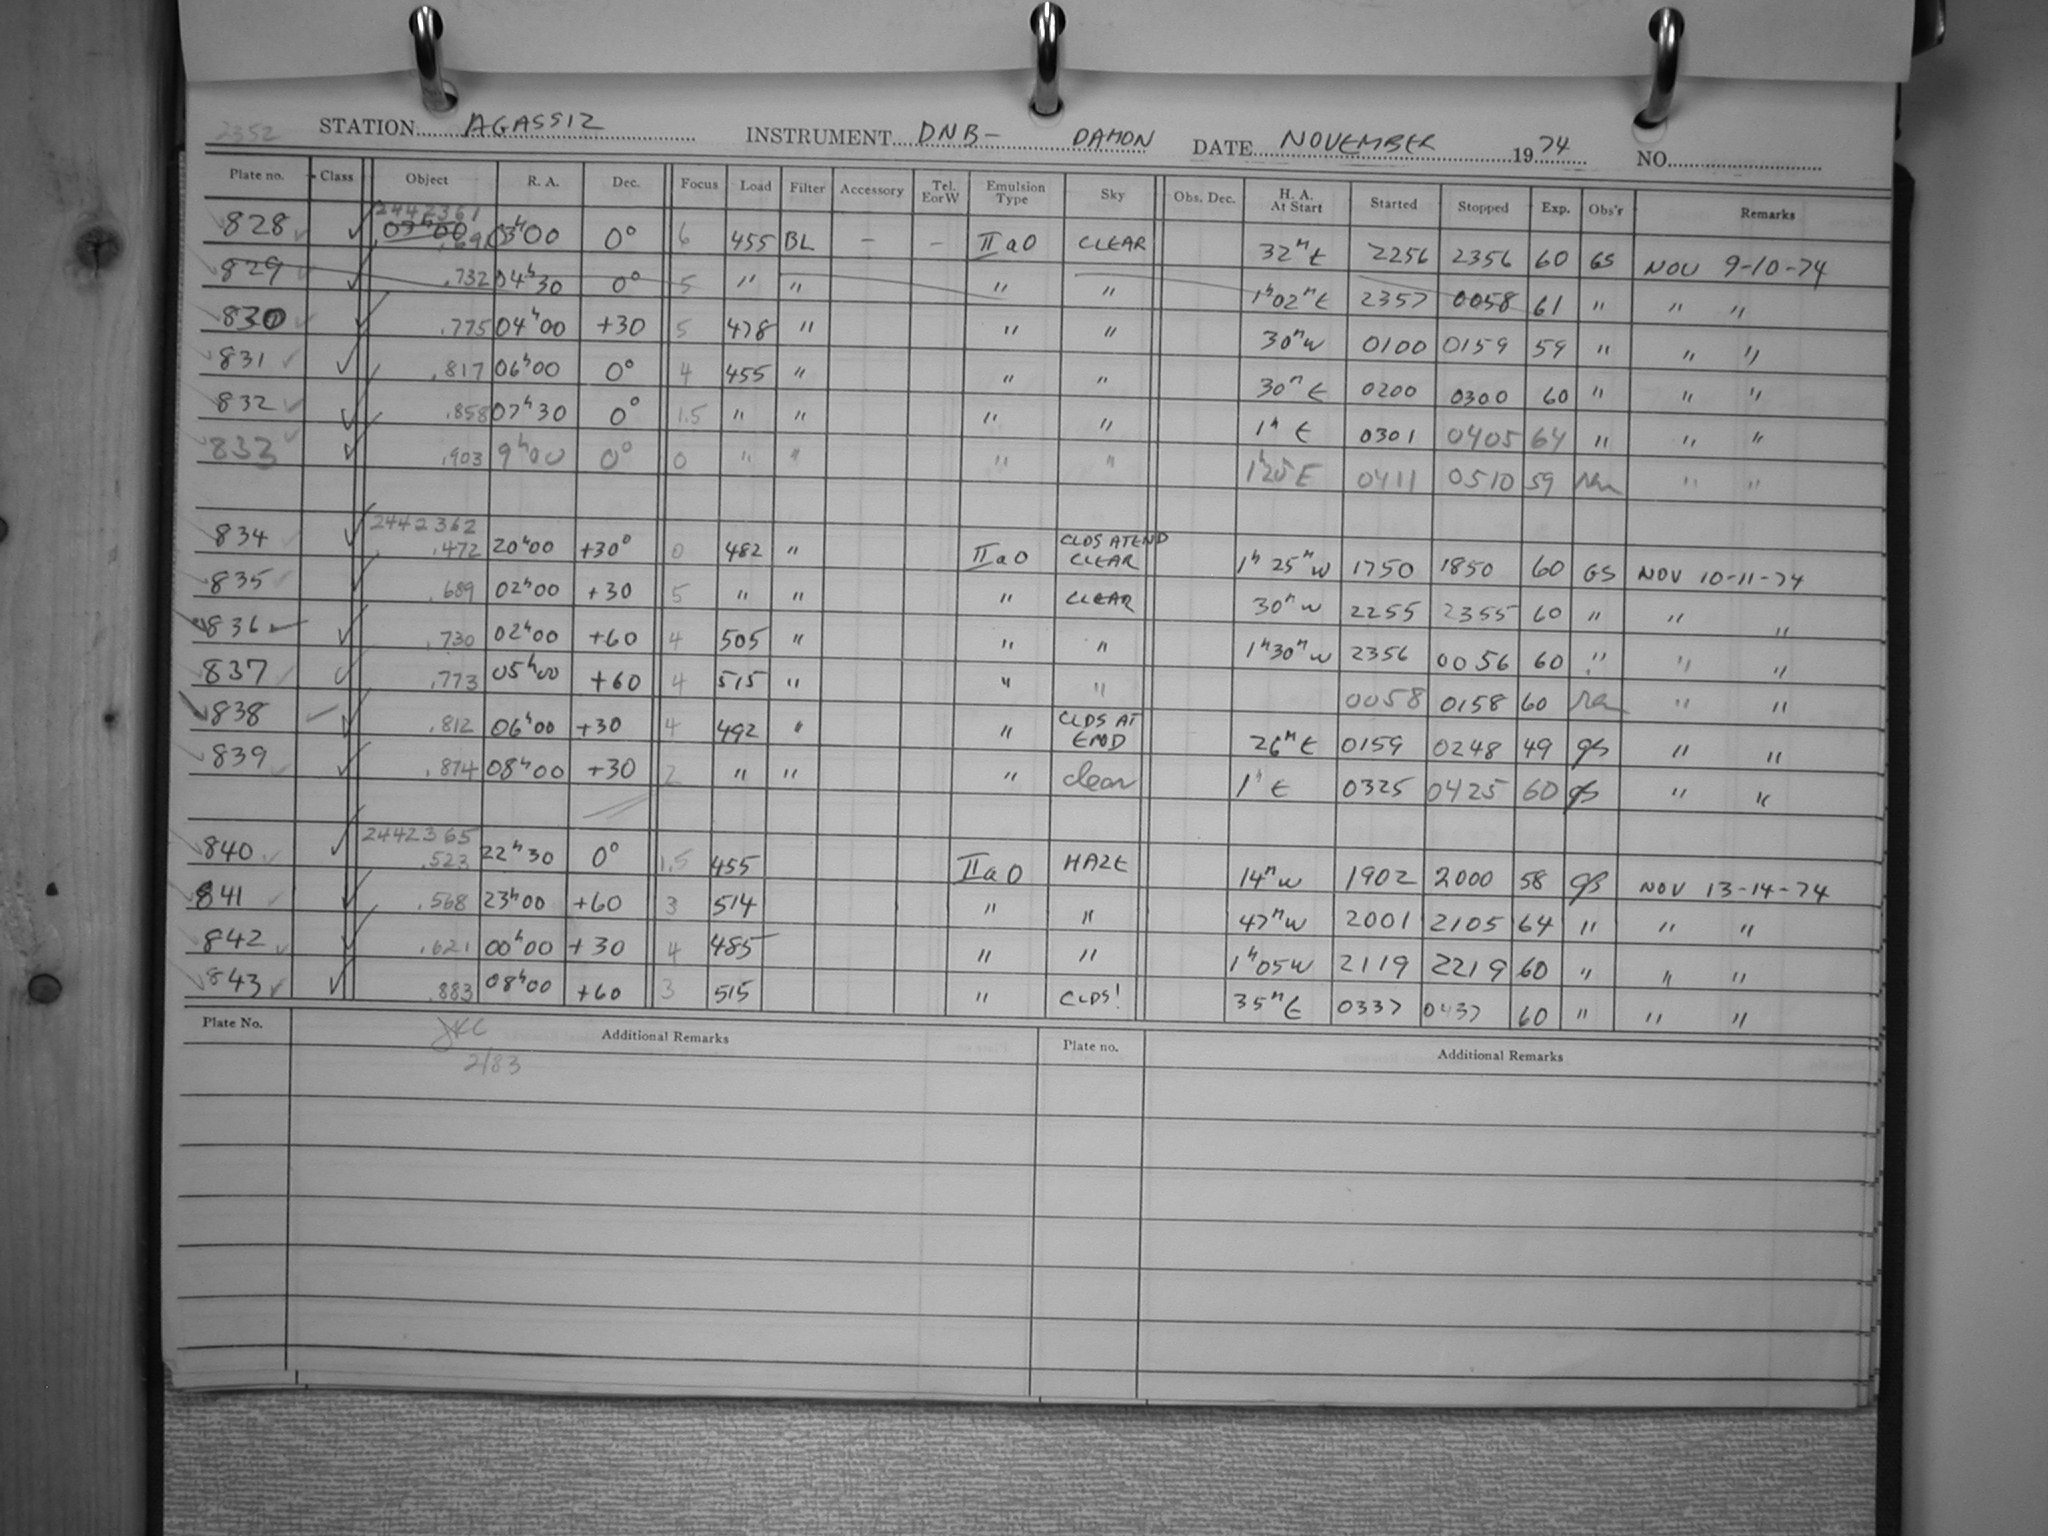 2352 STATION AGASSIZ INSTRUMENT DNB- DAMON DATE NOVEMBER 1974 NO.
Plate no. Class Object R. A. Dec. Focus Load Filter Accessory Tel. EorW Emulsion Type Sky Obs. Dec. H. A. At Start Started Stopped Exp. Obs'r Remarks
2442361
828 ✓ 03ʰ00 .691 03ʰ00 0° 6 455 BL - - IIaO CLEAR 32ᵐE 2256 2356 60 GS NOV 9-10-74
829 ✓ .732 04ʰ30 0° 5 " " " " 1ʰ02ᵐE 2357 0058 61 " " "
830 ✓ .775 04ʰ00 +30 5 478 " " " 30ᵐW 0100 0159 59 " " "
831 ✓ .817 06ʰ00 0° 4 455 " " " 30ᵐE 0200 0300 60 " " "
832 ✓ .858 07ʰ30 0° 1.5 " " " " 1ʰ E 0301 0405 64 " " "
833 ✓ .903 9ʰ00 0° 0 " " " " 1ʰ25E 0411 0510 59 " "
2442362
834 ✓ .472 20ʰ00 +30° 0 482 " IIaO CLDS AT END CLEAR 1ʰ 25ᵐW 1750 1850 60 GS NOV 10-11-74
835 ✓ .689 02ʰ00 +30 5 " " " CLEAR 30ᵐW 2255 2355 60 " " "
836 ✓ .730 02ʰ00 +60 4 505 " " " 1ʰ30ᵐW 2356 0056 60 " " "
837 ✓ .773 05ʰ00 +60 4 515 " " " 0058 0158 60 " "
838 ✓ .812 06ʰ00 +30 4 492 " " CLDS AT END 26ᵐE 0159 0248 49 gs " "
839 ✓ .874 08ʰ00 +30 2 " " " clear 1ʰ E 0325 0425 60 gs " "
2442365
840 ✓ .523 22ʰ30 0° 1.5 455 IIaO HAZE 14ᵐW 1902 2000 58 gs NOV 13-14-74
841 ✓ .568 23ʰ00 +60 3 514 " " 47ᵐW 2001 2105 64 " " "
842 ✓ .621 00ʰ00 +30 4 485 " " 1ʰ05W 2119 2219 60 " " "
843 ✓ .883 08ʰ00 +60 3 515 " CLDS! 35ᵐE 0337 0437 60 " " "
Plate No. Additional Remarks Plate no. Additional Remarks
JKC
2/83